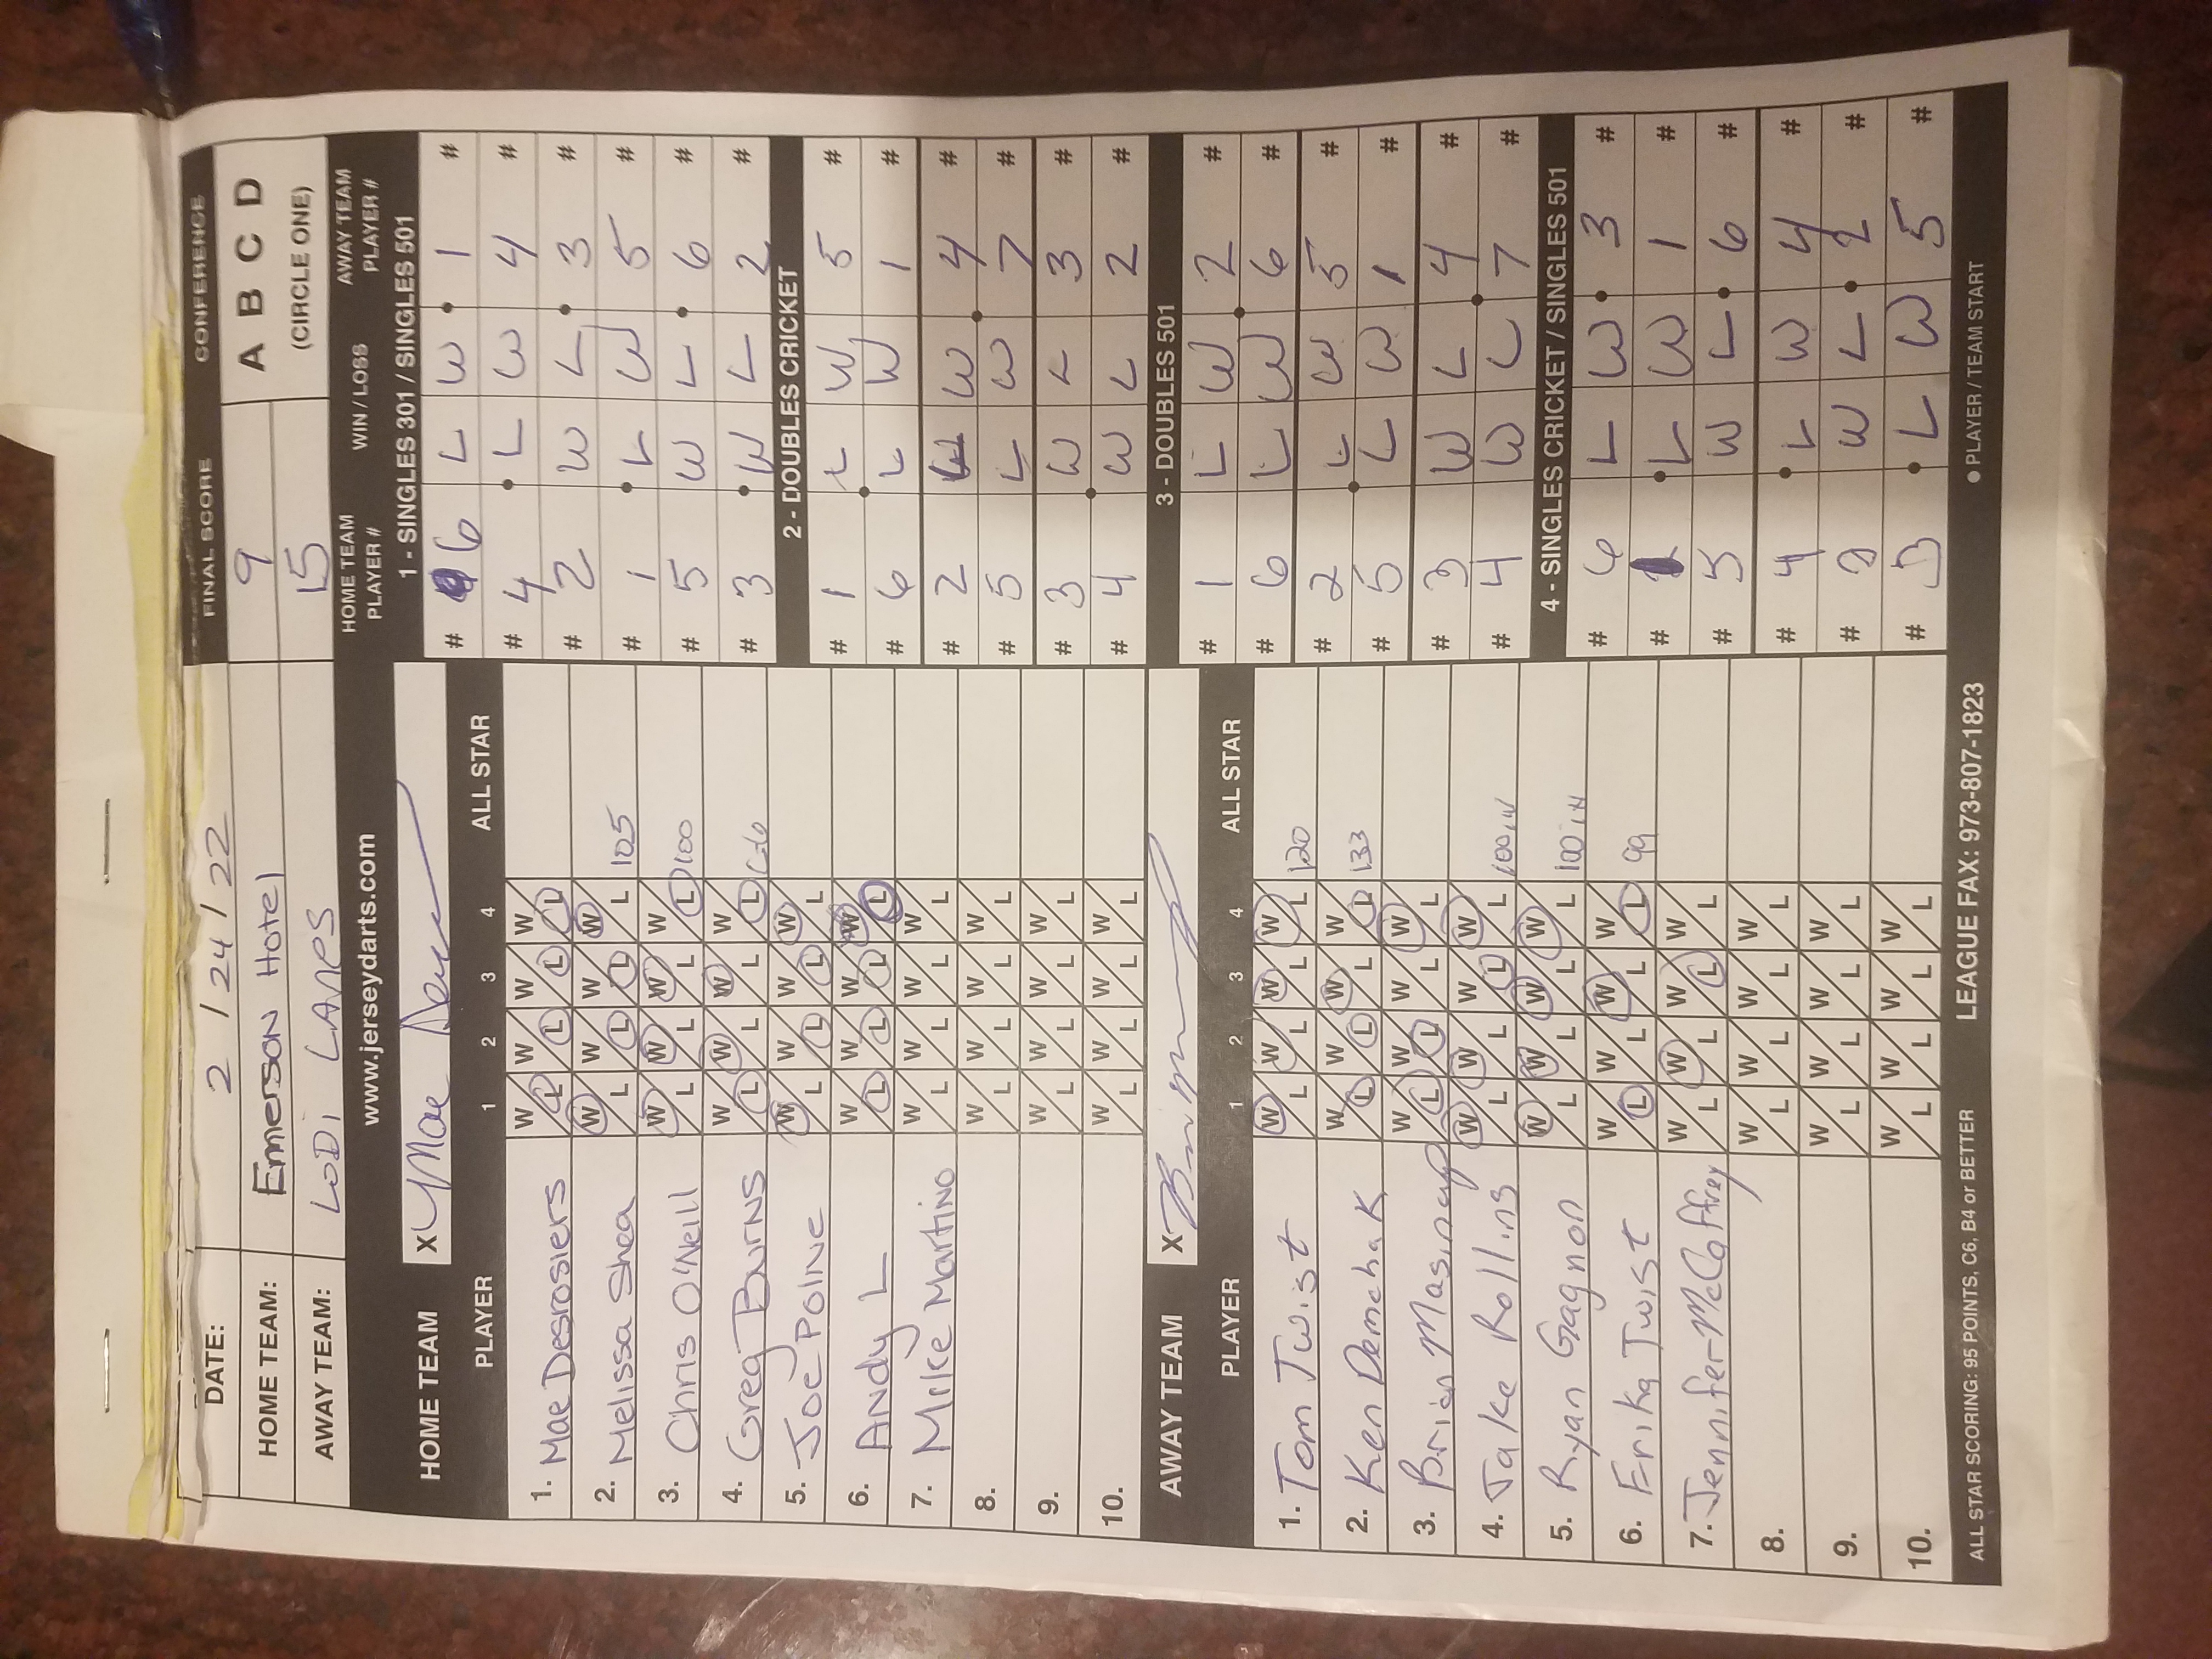 DATE: 2 / 24 / 22 FINAL SCORE CONFERENCE
HOME TEAM: Emerson Hotel 9 A B C D
AWAY TEAM: LODI LANES 15 (CIRCLE ONE)
www.jerseydarts.com
HOME TEAM PLAYER # WIN / LOSS AWAY TEAM PLAYER #
HOME TEAM X Mae
PLAYER 1 2 3 4 ALL STAR
1. Mae Desrosiers W/L W/L W/L W/L
2. Melissa Shea W/L W/L W/L W/L 105
3. Chris O'Neill W/L W/L W/L W/L 100
4. Greg Burns W/L W/L W/L W/L C-6
5. Joe Poline W/L W/L W/L W/L
6. Andy L W/L W/L W/L W/L
7. Mike Martino W/L W/L W/L W/L
8. W/L W/L W/L W/L
9. W/L W/L W/L W/L
10. W/L W/L W/L W/L
AWAY TEAM X
PLAYER 1 2 3 4 ALL STAR
1. Tom Twist W/L W/L W/L W/L 120
2. Ken Demchak W/L W/L W/L W/L 133
3. Brian W/L W/L W/L W/L
4. Jake Rollins W/L W/L W/L W/L 100 in
5. Ryan Gagnon W/L W/L W/L W/L 100 in
6. Erika Twist W/L W/L W/L W/L 99
7. Jennifer-McCaffrey W/L W/L W/L W/L
8. W/L W/L W/L W/L
9. W/L W/L W/L W/L
10. W/L W/L W/L W/L
1 - SINGLES 301 / SINGLES 501
# 6 L W 1 #
# 4 L W 4 #
# 2 W L 3 #
# 1 L W 5 #
# 5 W L 6 #
# 3 W L 2 #
2 - DOUBLES CRICKET
# 1 L W 5 #
# 6 L W 1 #
# 2 L W 4 #
# 5 L W 7 #
# 3 W L 3 #
# 4 W L 2 #
3 - DOUBLES 501
# 1 L W 2 #
# 6 L W 6 #
# 2 L W 5 #
# 5 L W 1 #
# 3 W L 4 #
# 4 W L 7 #
4 - SINGLES CRICKET / SINGLES 501
# 6 L W 3 #
# 1 L W 1 #
# 5 W L 6 #
# 4 L W 4 #
# 2 W L 2 #
# 3 L W 5 #
ALL STAR SCORING: 95 POINTS, C6, B4 or BETTER LEAGUE FAX: 973-807-1823 ● PLAYER / TEAM START